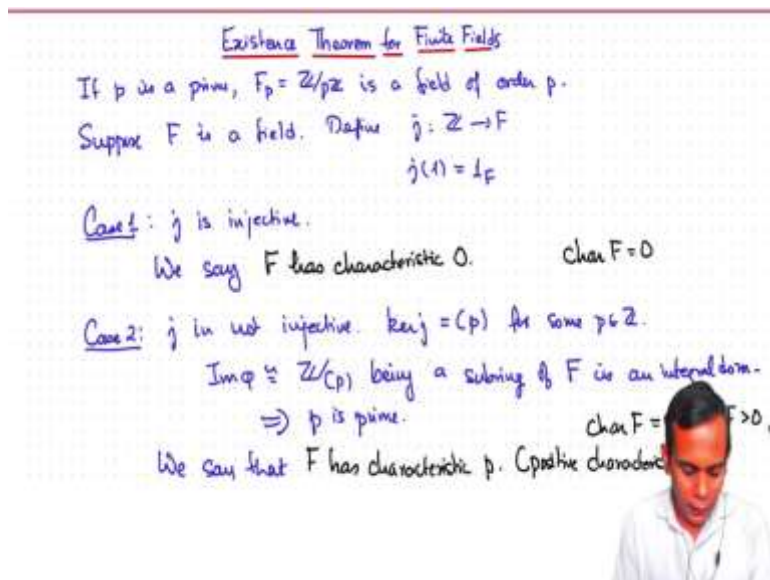 Existence Theorem for Finite Fields
If p is a prime, F_p = ℤ/pℤ is a field of order p.
Suppose F is a field. Define j : ℤ → F
j(1) = 1_F
Case 1 : j is injective.
We say F has characteristic 0. Char F = 0
Case 2: j is not injective. ker j = (p) for some p ∈ ℤ.
Im φ ≅ ℤ/(p) being a subring of F is an integral dom-
⇒ p is prime. char F = F > 0,
We say that F has characteristic p. (positive